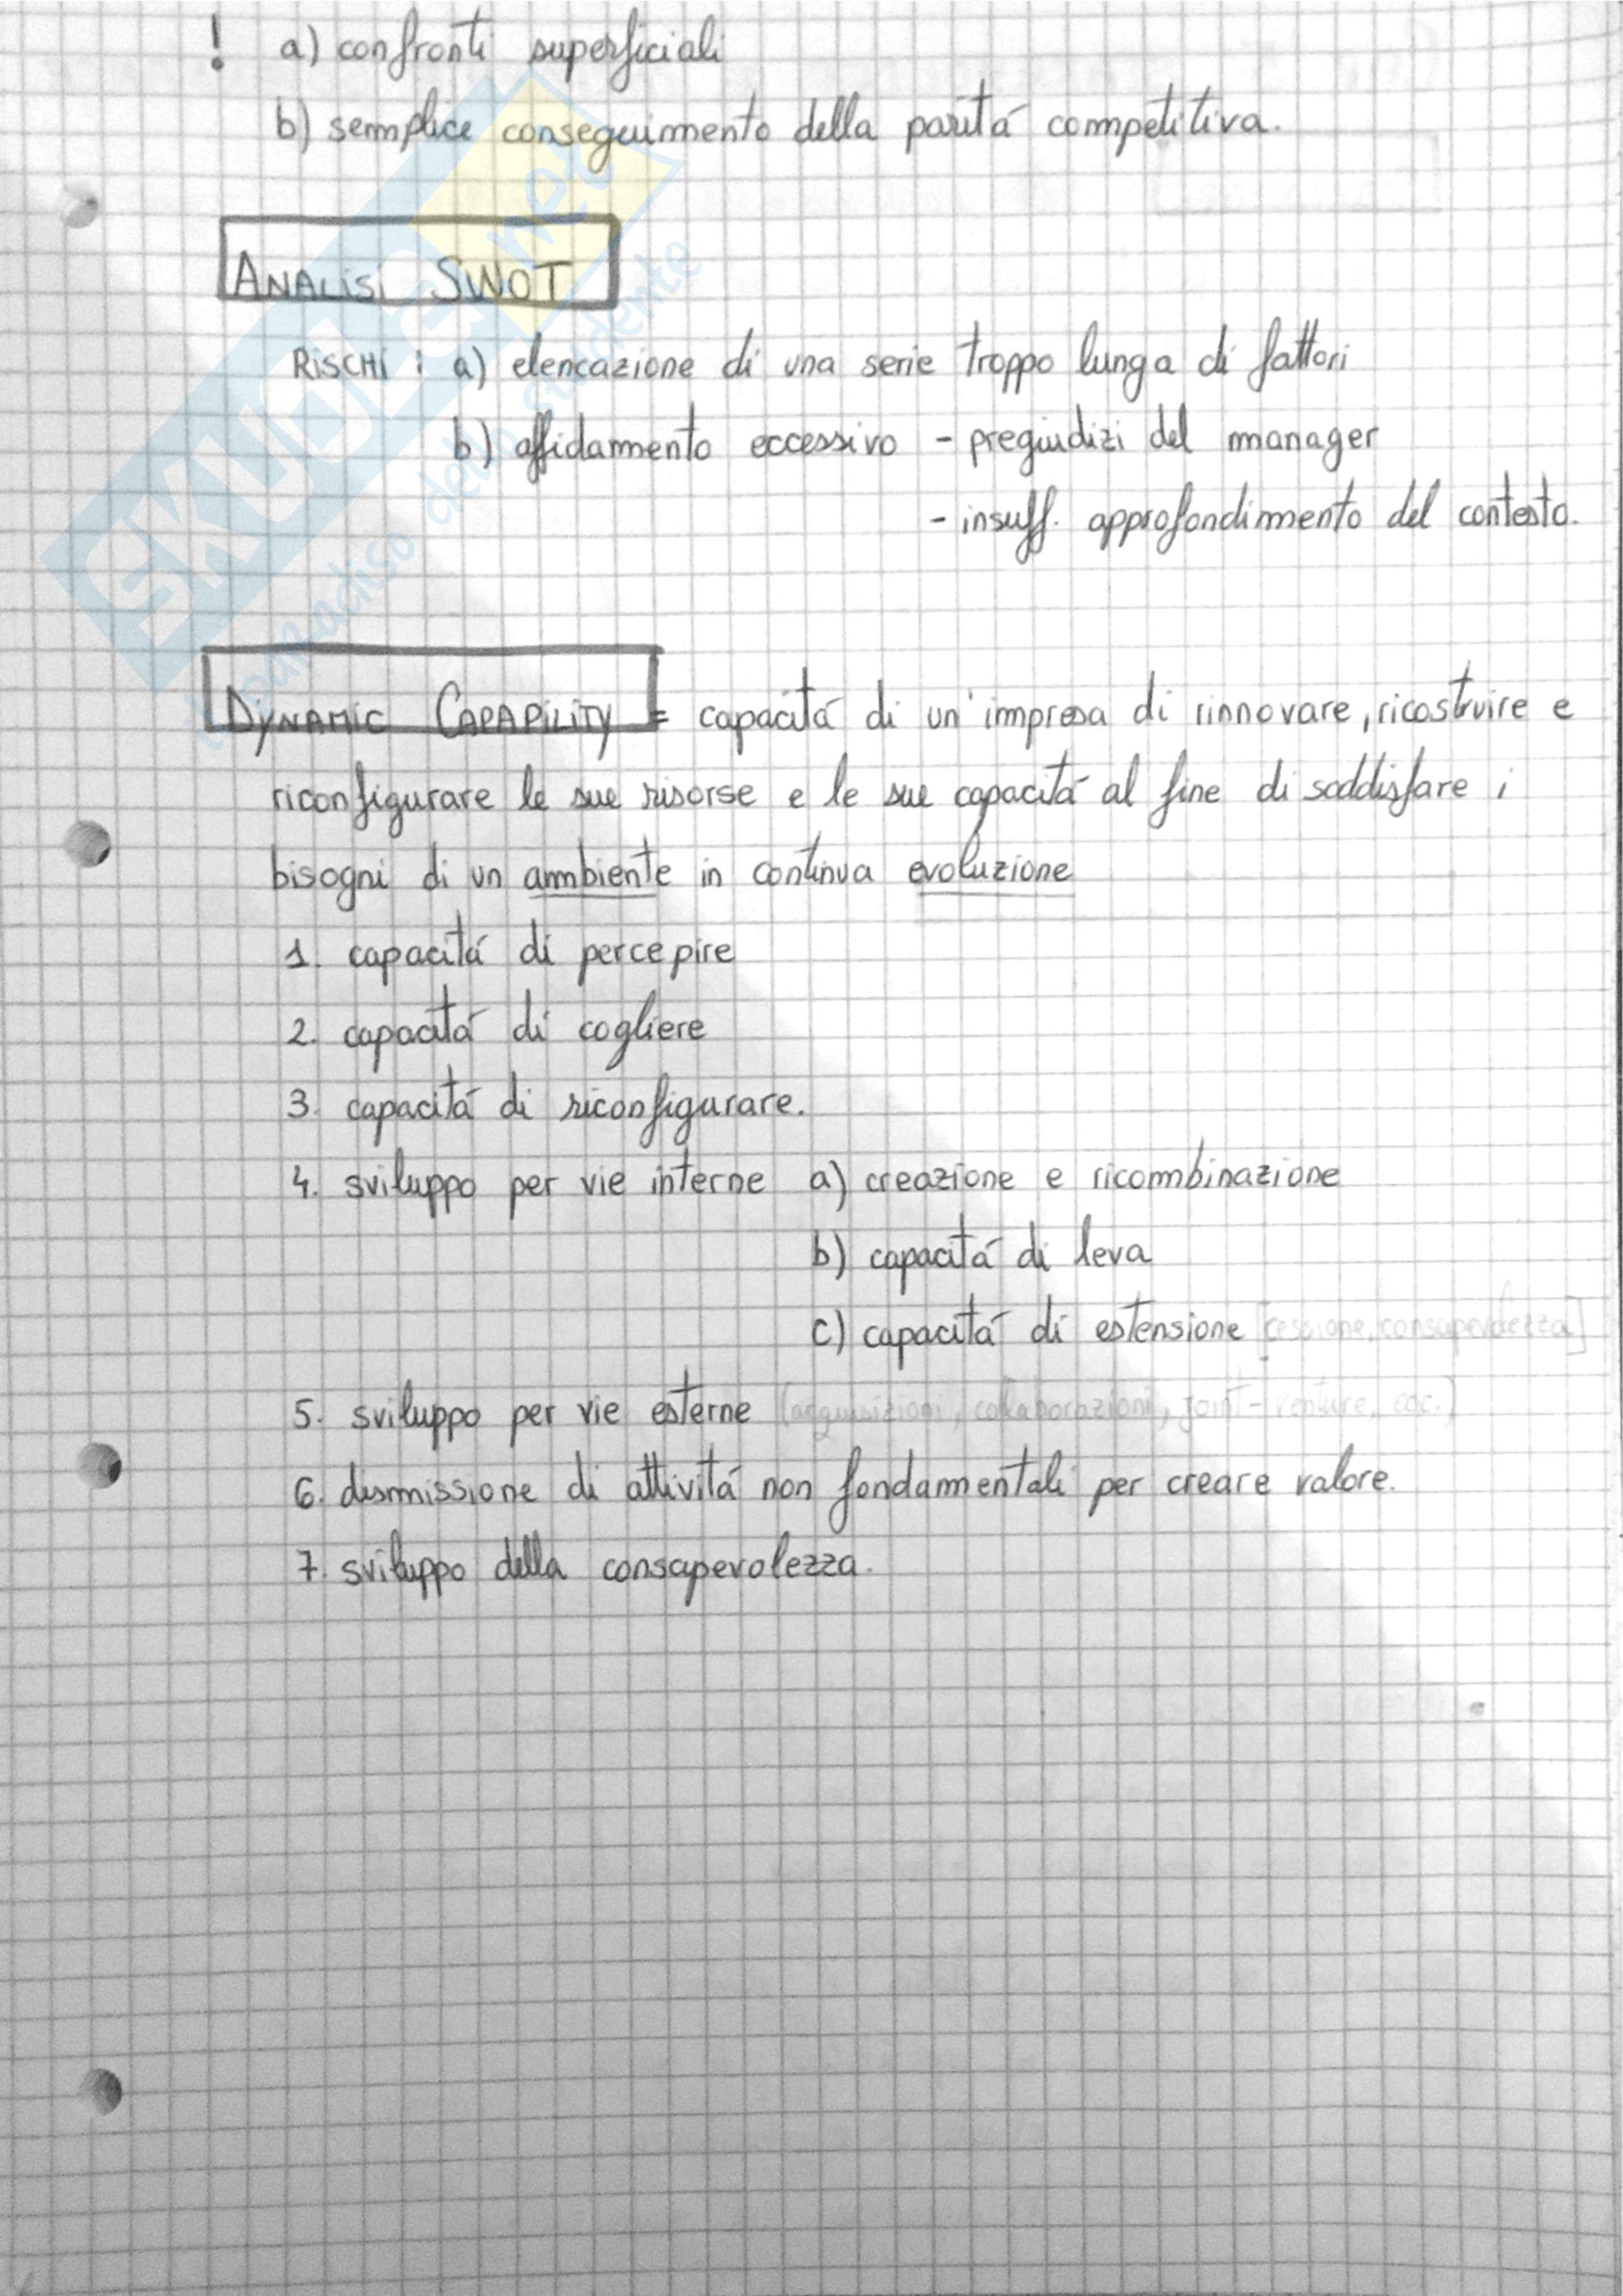 ! a) confronti superficiali
b) semplice conseguimento della parità competitiva.
ANALISI SWOT
RISCHI : a) elencazione di una serie troppo lunga di fattori
b) affidamento eccessivo - pregiudizi del manager
- insuff. approfondimento del contesto.
DYNAMIC CAPAPILITY = capacità di un'impresa di rinnovare, ricostruire e
riconfigurare le sue risorse e le sue capacità al fine di soddisfare i
bisogni di un ambiente in continua evoluzione
1. capacità di percepire
2. capacità di cogliere
3. capacità di riconfigurare.
4. sviluppo per vie interne a) creazione e ricombinazione
b) capacità di leva
c) capacità di estensione [cessione, consapevolezza]
5. sviluppo per vie esterne (acquisizioni, collaborazioni, joint-venture, ecc.)
6. dismissione di attività non fondamentali per creare valore.
7. sviluppo della consapevolezza.
SKUOLA.net
il paradiso dello studente